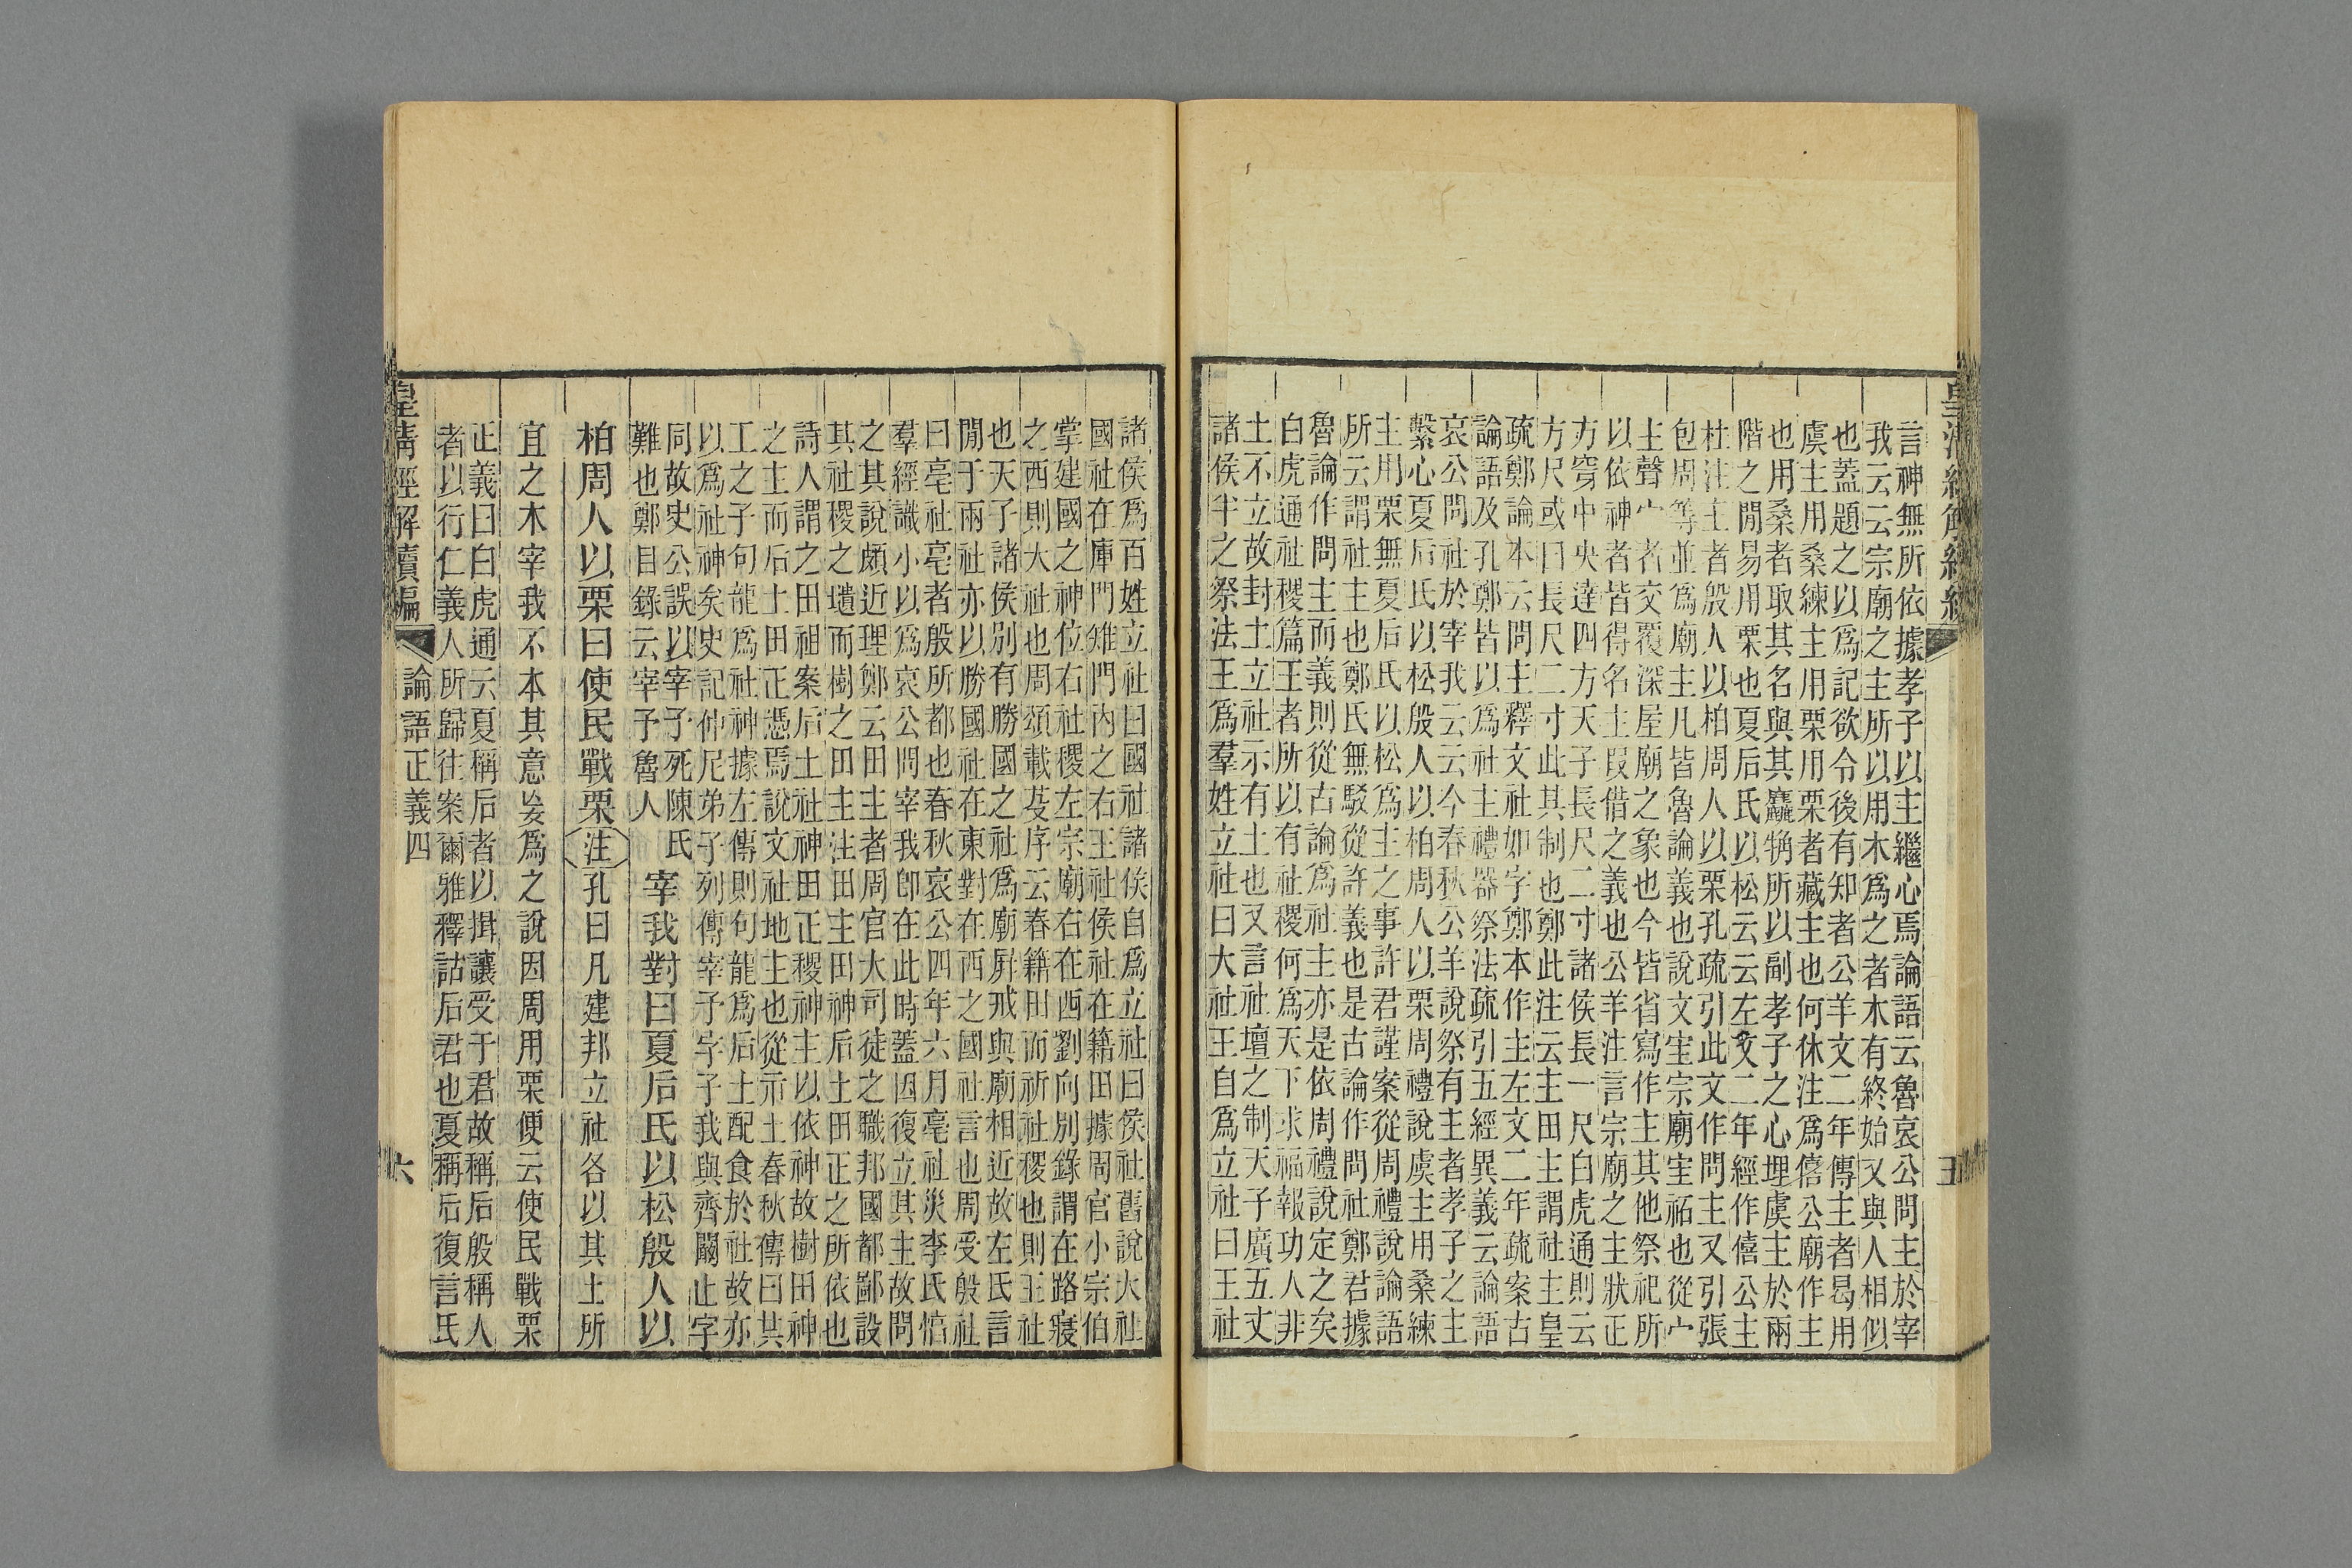 言神無所依據孝子以主繼心焉論語云魯哀公問主於宰
我云云宗廟之主所以用木爲之者木有終始又與人相似
也蓋題之以爲記欲令後有知者公羊文二年傳主者曷用
虞主用桑練主用栗用栗者藏主也何休注爲僖公廟作主
也用桑者取其名與其麤觕所以副孝子之心埋虞主於兩
階之閒易用栗也夏后氏以松云云左文二年經作僖公主
杜注主者殷人以柏周人以栗孔疏引此文作問主又引張
包周等並爲廟主凡皆魯論義也說文宔宗廟宔祏也從宀
主聲宀者交覆深屋廟之象也今皆省寫作主其他祭祀所
以依神者皆得名主叚借之義也公羊注言宗廟之主狀正
方穿中央達四方天子長尺二寸諸侯長一尺白虎通則云
方尺或曰長尺二寸此其制也鄭此注云主田主謂社主皇
疏鄭論本云問主釋文社如字鄭本作主左文二年疏案古
論語及孔鄭皆以爲社主禮器祭法疏引五經異義云論語
哀公問社於宰我云云今春秋公羊說祭有主者孝子之主
繫心夏后氏以松殷人以柏周人以栗周禮說虞主用桑練
主用栗無夏后氏以松爲主之事許君謹案從周禮說論語
所云謂社主也鄭氏無駁從許義也是古論作問社鄭君據
魯論作問主而義則從古論爲社主亦是依周禮說定之矣
白虎通社稷篇王者所以有社稷何爲天下求福報功人非
土不立故封土立社示有土也又言社壇之制天子廣五丈
諸侯半之祭法王爲羣姓立社曰大社王自爲立社曰王社
皇清經解續編
五
諸侯爲百姓立社曰國社諸侯自爲立社曰侯社舊說大社
國社在庫門雉門內之右王社侯社在籍田據周官小宗伯
掌建國之神位右社稷左宗廟右在西劉向別錄謂在路寢
之西則大社也周頌載芟序云春籍田而祈社稷也則王社
也天子諸侯別有勝國之社爲廟屏戒與廟相近故左氏言
閒于兩社亦以勝國社在東對在西之國社言也周受殷社
曰亳社亳者殷所都也春秋哀公四年六月亳社災李氏惇
羣經識小以爲哀公問宰我卽在此時蓋因復立其主故問
之其說頗近理鄭云田主者周官大司徒之職邦國都鄙設
其社稷之壝而樹之田主注田主田神后土田正之所依也
詩人謂之田祖案后土社神田正稷神主以依神故樹田神
之主而后土田正憑焉說文社地主也從示土春秋傳曰共
工之子句龍爲社神據左傳則句龍爲后土配食於社故亦
以爲社神矣史記仲尼弟子列傳宰予字子我與齊闞止字
同故史公誤以宰予死陳氏
難也鄭目錄云宰予魯人
宰我對曰夏后氏以松殷人以
柏周人以栗曰使民戰栗注孔曰凡建邦立社各以其土所
宜之木宰我不本其意妄爲之說因周用栗便云使民戰栗
正義曰白虎通云夏稱后者以揖讓受于君故稱后殷稱人
者以行仁義人所歸往案爾雅釋詁后君也夏稱后復言氏
皇清經解續編
論語正義四
六